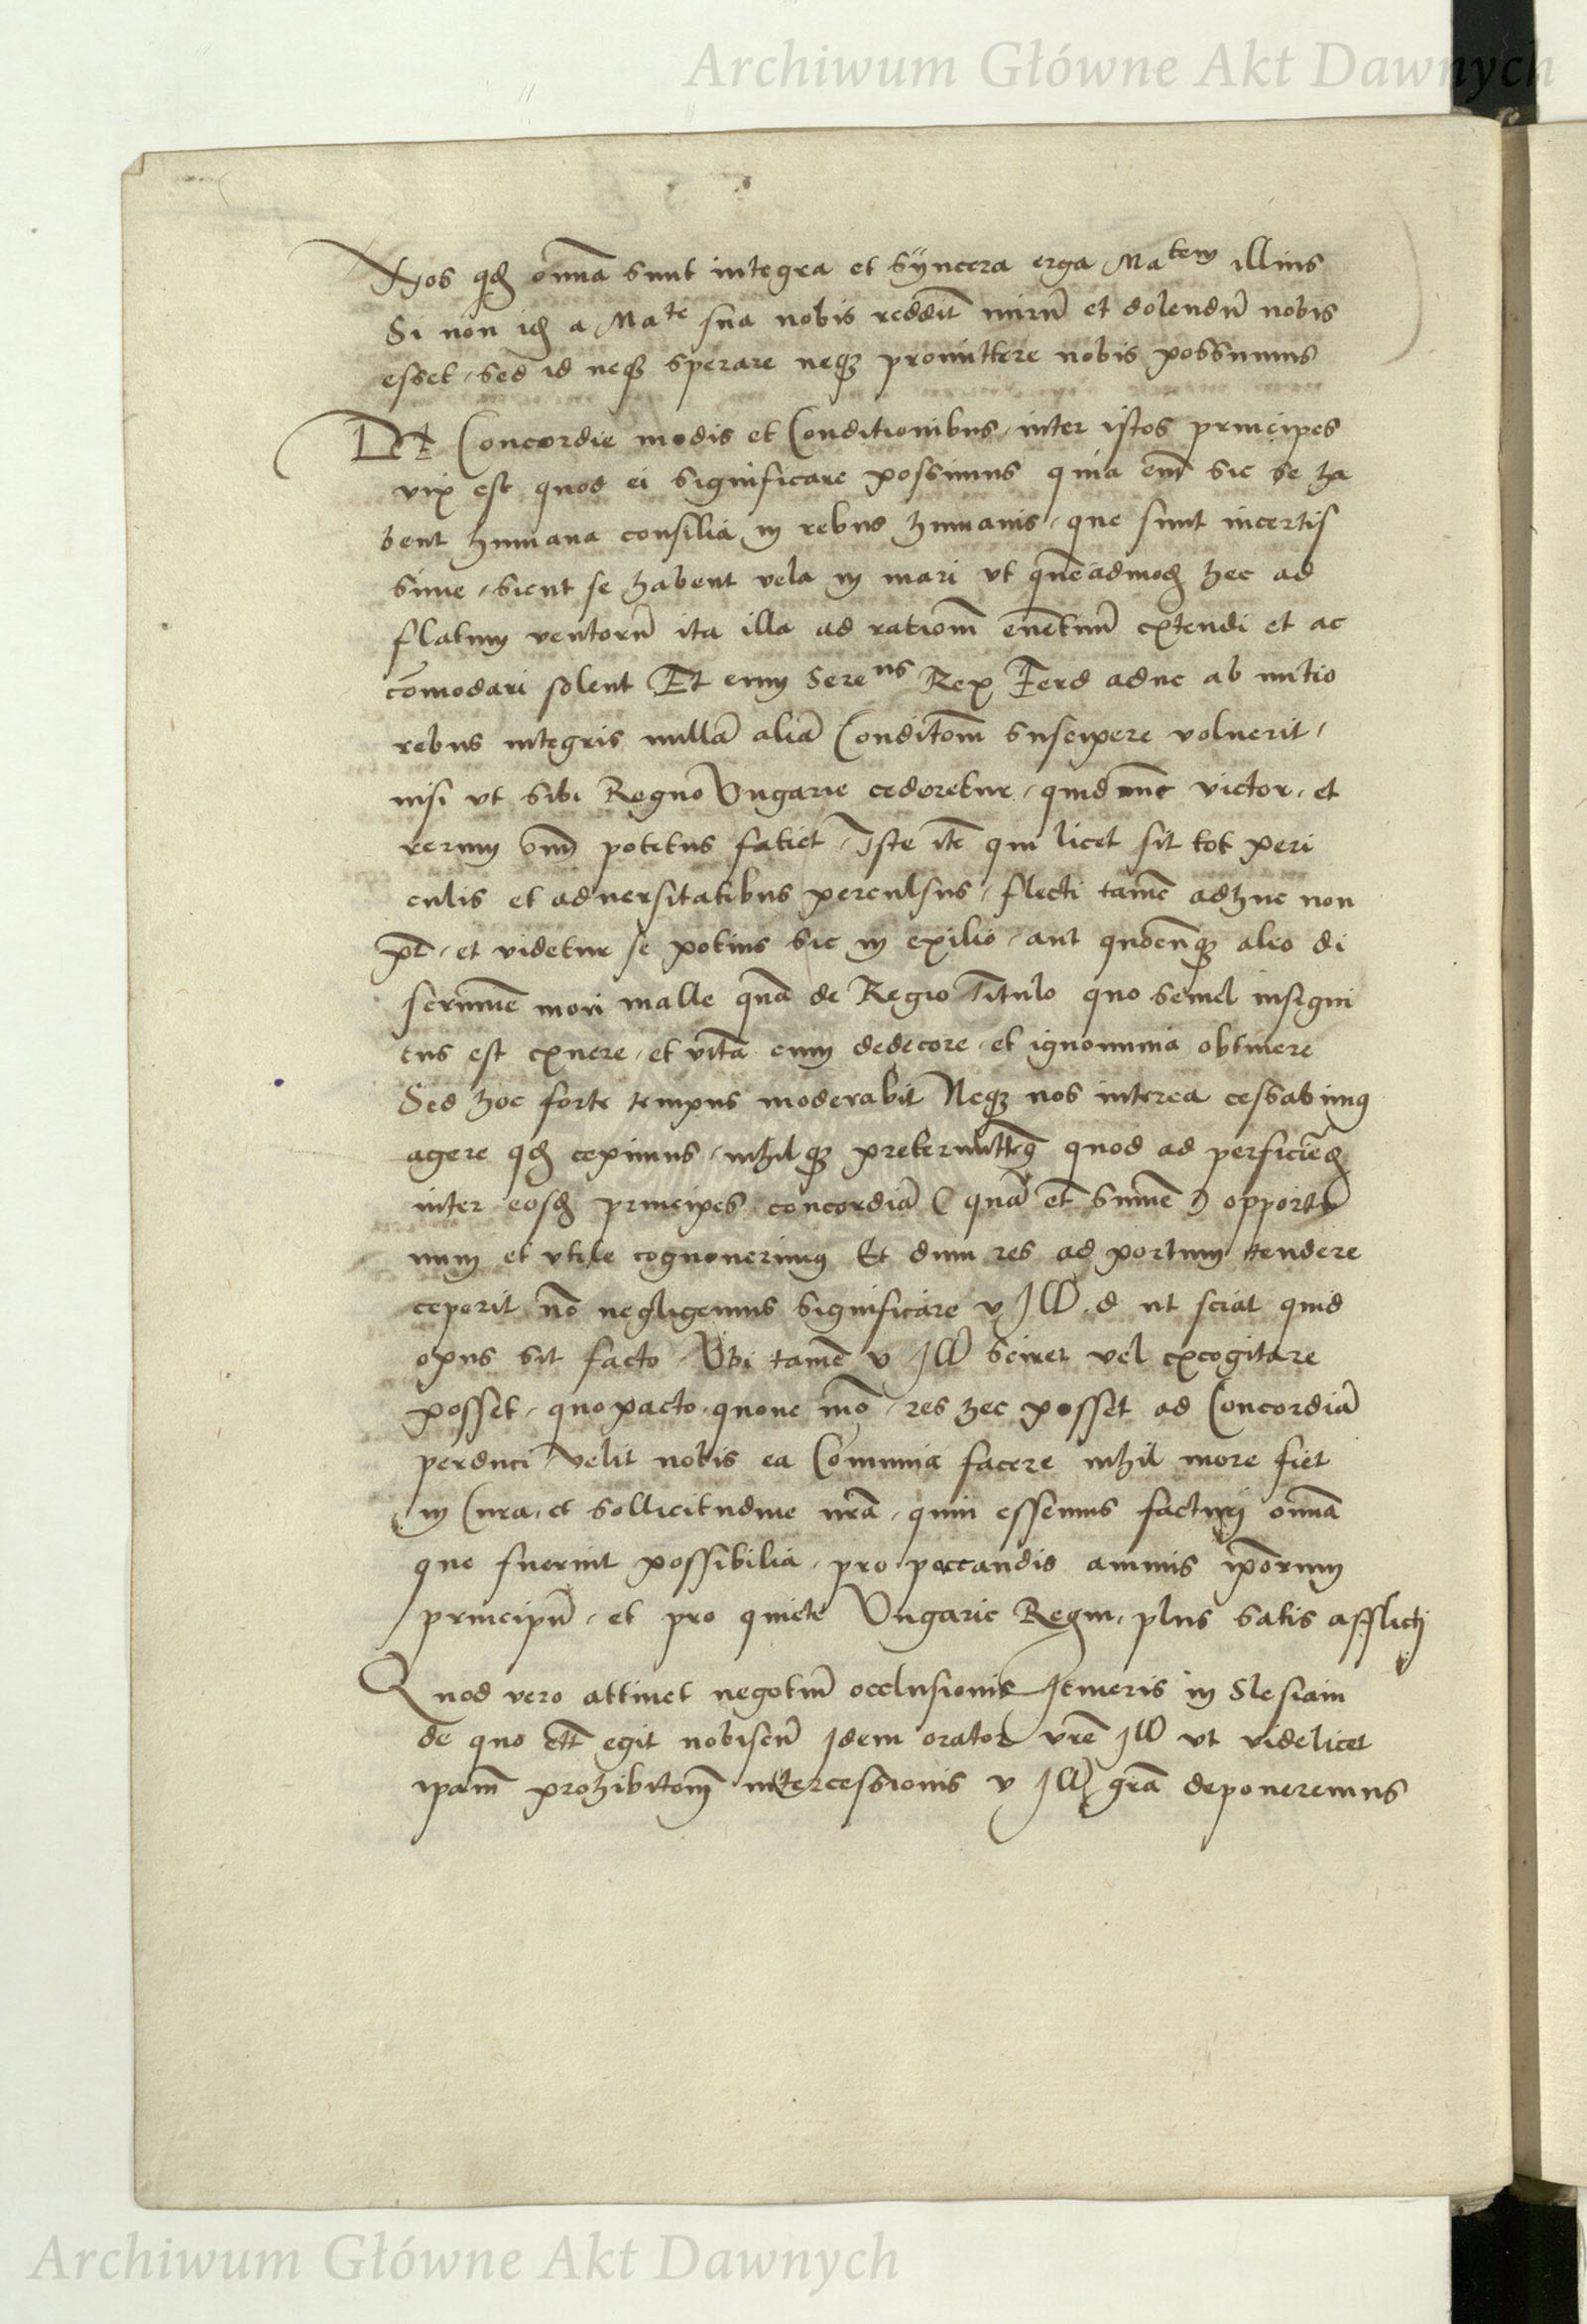 Archiwum Główne Akt Dawnych
Nos qđ om̄ia sunt integra et syncera erga Ma^tem illius
Si non iđ a Ma^te sua nobis reddit̄ mirū et dolendū nobis
esset, sed id neqꝫ sperare neqꝫ promittere nobis possumus
DE Concordie modis et Conditionibus, inter istos principes
vix est quod ei significare possimus quia em̄ sic se ha
bent humana consilia in rebus humanis, que sunt incertis
sime, sicut se habent vela in mari vt quēadmođ hec ad
flatum ventorū ita illa ad rationē euentuū extendi et ac
com̄odari solent Et enim Sere^ns Rex Ferd aduc ab initio
rebus integris nullā aliā Conditōm suscipere voluerit,
nisi vt sibi Regno Vngarie cederetur, quid nūc victor, et
rerum om̄ potitus faciet, Iste itē qui licet sit tot peri
culis et aduersitatibus perculsus, flecti tamē adhuc non
pōt, et videtur se potius sic in exilio, aut quocūqꝫ aleo di
scrimīe mori malle quā de Regio Titulo quo semel insigni
tus est exuere, et vitā cum dedecore, et ignominia obtinere
Sed hoc forte tempus moderabit Neqꝫ nos interea cessabimꝰ
agere qđ cepimus, nihilqꝫ pretermittemꝰ quod ad perficiēđ
inter eosđ principes concordiā ( quā et̄ summe ) opportu
num et vtile cognouerimꝰ Et dum res ad portum tendere
ceperit nō negligemus significare v Ill̄. d ut sciat quid
opus sit facto, Vbi tamē v Ill̄ sciret vel excogitare
posset, quo pacto, quoue mō, res hec posset ad Concordiā
perduci, velit nobis ea Com̄unia facere nihil more fiet
in Cura, et sollicitudine nrā, quin essemus facturi om̄ia
que fuerint possibilia, pro paccandis animis ipōrum
principū, et pro quiete Vngarie Regni, plus satis afflicti
Quod vero attinet negotiū occlusionis Itineris in Slesiam
de quo ett̄ egit nobiscū idem orator vrē Ill̄ vt videlicet
ipam̄ prohibitōm intercessionis v Ill̄ grā deponeremus
Archiwum Główne Akt Dawnych